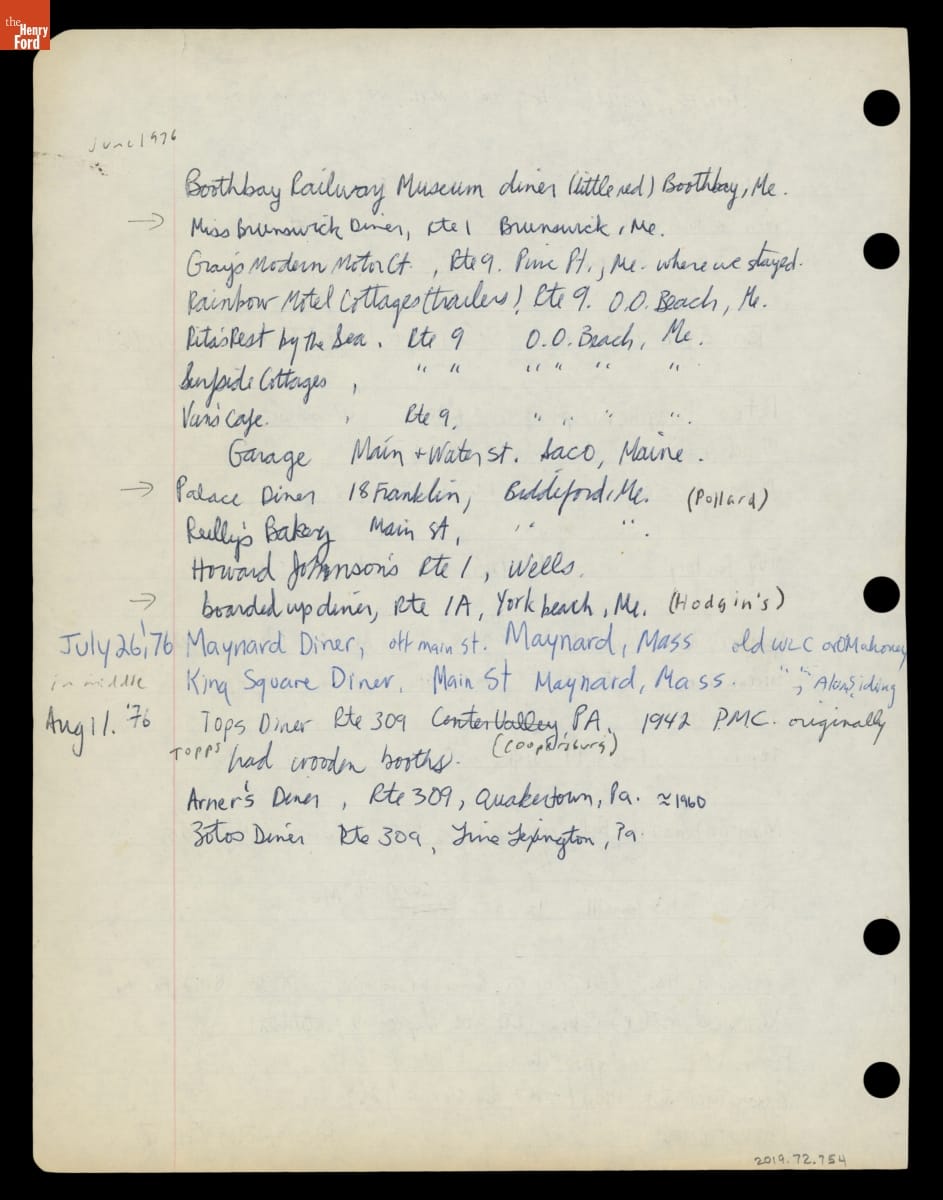 the
Henry
Ford
June 1976
Boothbay Railway Museum diner (little red) Boothbay, Me.
→ Miss Brunswick Diner, Rte 1 Brunswick, Me.
Gray's Modern Motor Ct., Rte 9. Pine Pt., Me. where we stayed.
Rainbow Motel Cottages (trailers) Rte 9. O.O. Beach, Me.
Rita's Rest by the Sea. Rte 9 O.O. Beach, Me.
Surfside Cottages, " " " " " "
Van's Cafe. , Rte 9, " " " ".
Garage Main + Water st. Saco, Maine.
→ Palace Diner 18 Franklin, Biddeford, Me. (Pollard)
Reilly's Bakery Main St, " ".
Howard Johnson's Rte 1, Wells.
→ boarded up diner, Rte 1A, York beach, Me. (Hodgin's)
July 26, '76 Maynard Diner, off main st. Maynard, Mass old WLC or O'Mahoney
in middle King Square Diner, Main St Maynard, Mass. " "; Alum. siding
Aug 11. '76 Tops Diner Rte 309 Center Valley PA. 1942 P.M.C. originally
TOPPS had wooden booths. (Coopersburg)
Arner's Diner, Rte 309, Quakertown, Pa. ≈1960
Zotos Diner Rte 309, Line Lexington, Pa.
2019.72.754